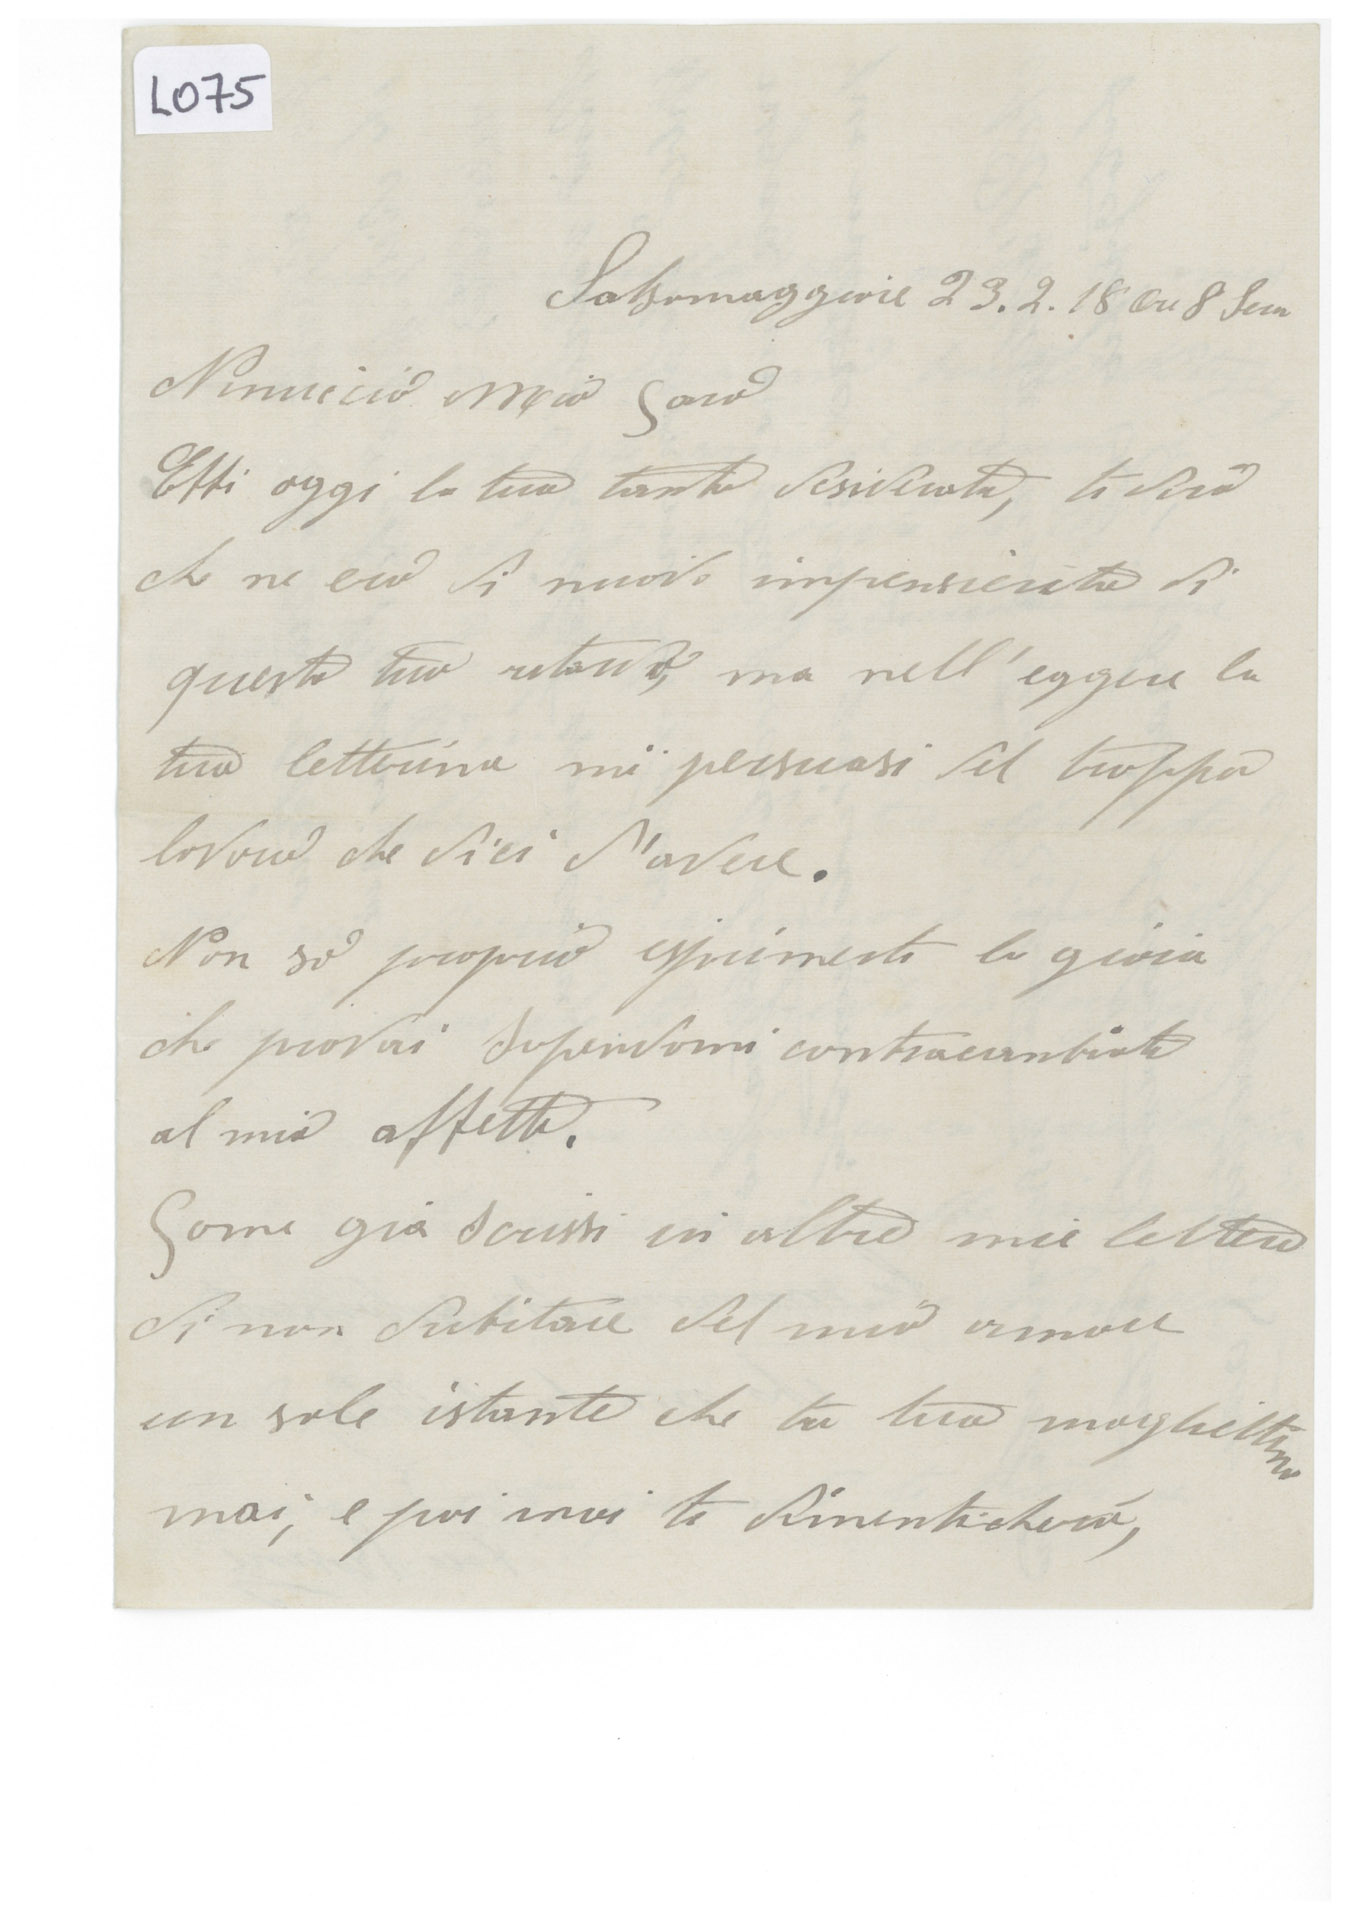 L075
Salsomaggiore 23.2.18 Ore 8 Sera
Ninuccio Mio Caro
Ebbi oggi la tua tanto desiderata, ti dirò
che ne ero di nuovo impensierita di
questo tuo ritardo, ma nell'eggere la
tua letterina mi persuasi del troppo
lavoro che dici d'avere.
Non sò proprio esprimerti la gioia
che provai sapendomi contracambiata
al mio affetto.
Come già scrissi in altre mie lettere
di non dubitare del mio amore
un sole istante che la tua moghiettina
mai, e poi mai ti dimenticherà,